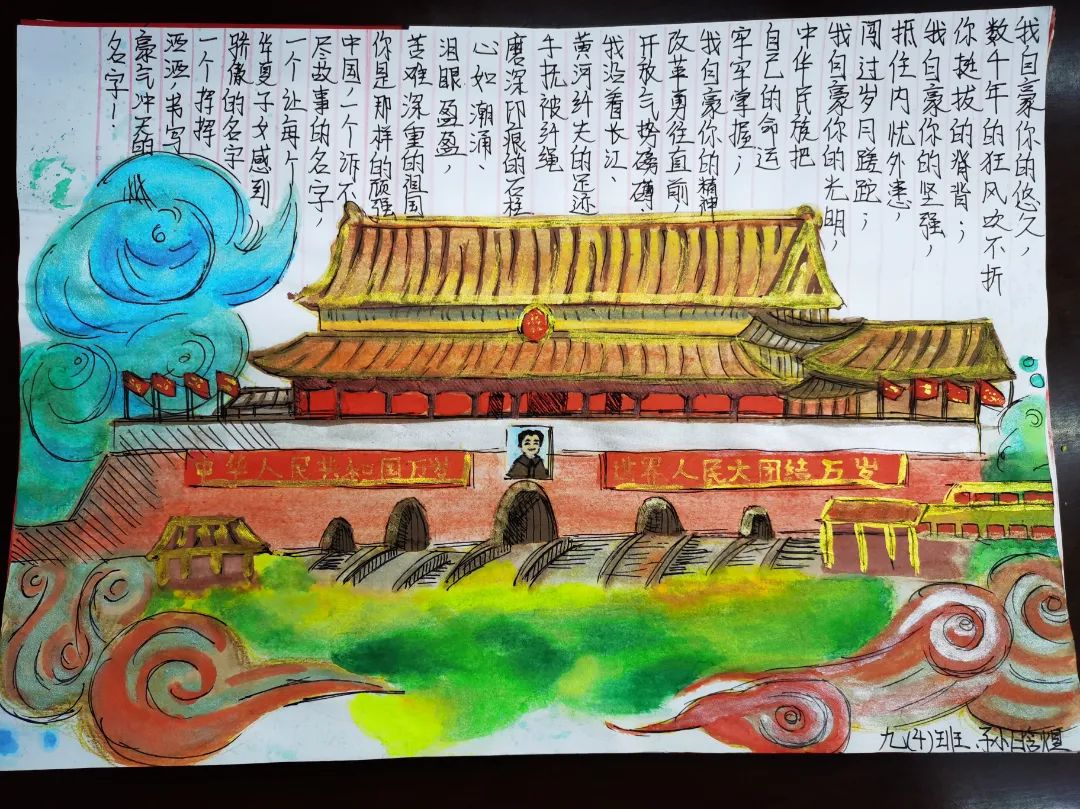 我自豪你的悠久，
数千年的狂风吹不折
你挺拔的脊背；
我自豪你的坚强，
抵住内忧外患，
闯过岁月蹉跎；
我自豪你的光明，
中华民族把
自己的命运
牢牢掌握；
我自豪你的精神
改革勇往直前，
开放气势磅礴。
我沿着长江、
黄河纤夫的足迹
手抚被纤绳
磨深印痕的石柱
心如潮涌、
泪眼盈盈，
苦难深重的祖国
你是那样的顽强
中国，一个诉不
尽故事的名字，
一个让每个
华夏子女感到
骄傲的名字，
一个挥挥
洒洒，书写
豪气冲天的
名字！
中华人民共和国万岁
世界人民大团结万岁
九(4)班 孙